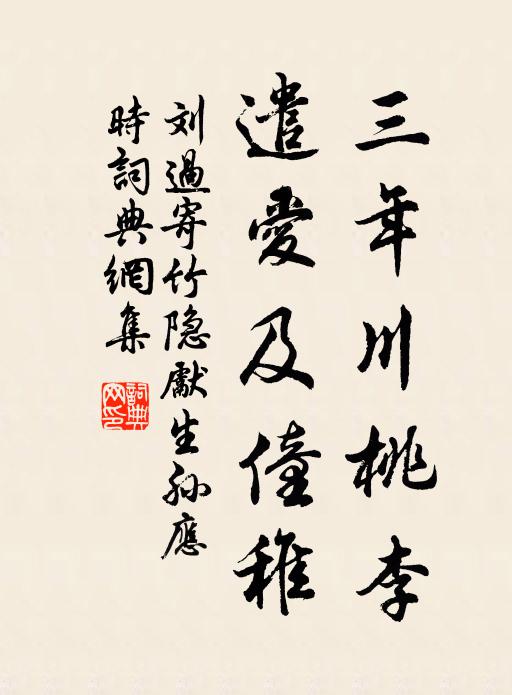 三年川桃李
遣愛及僮稚
刘過寄竹隐獻生孙應
時詞典網集
詞典網印